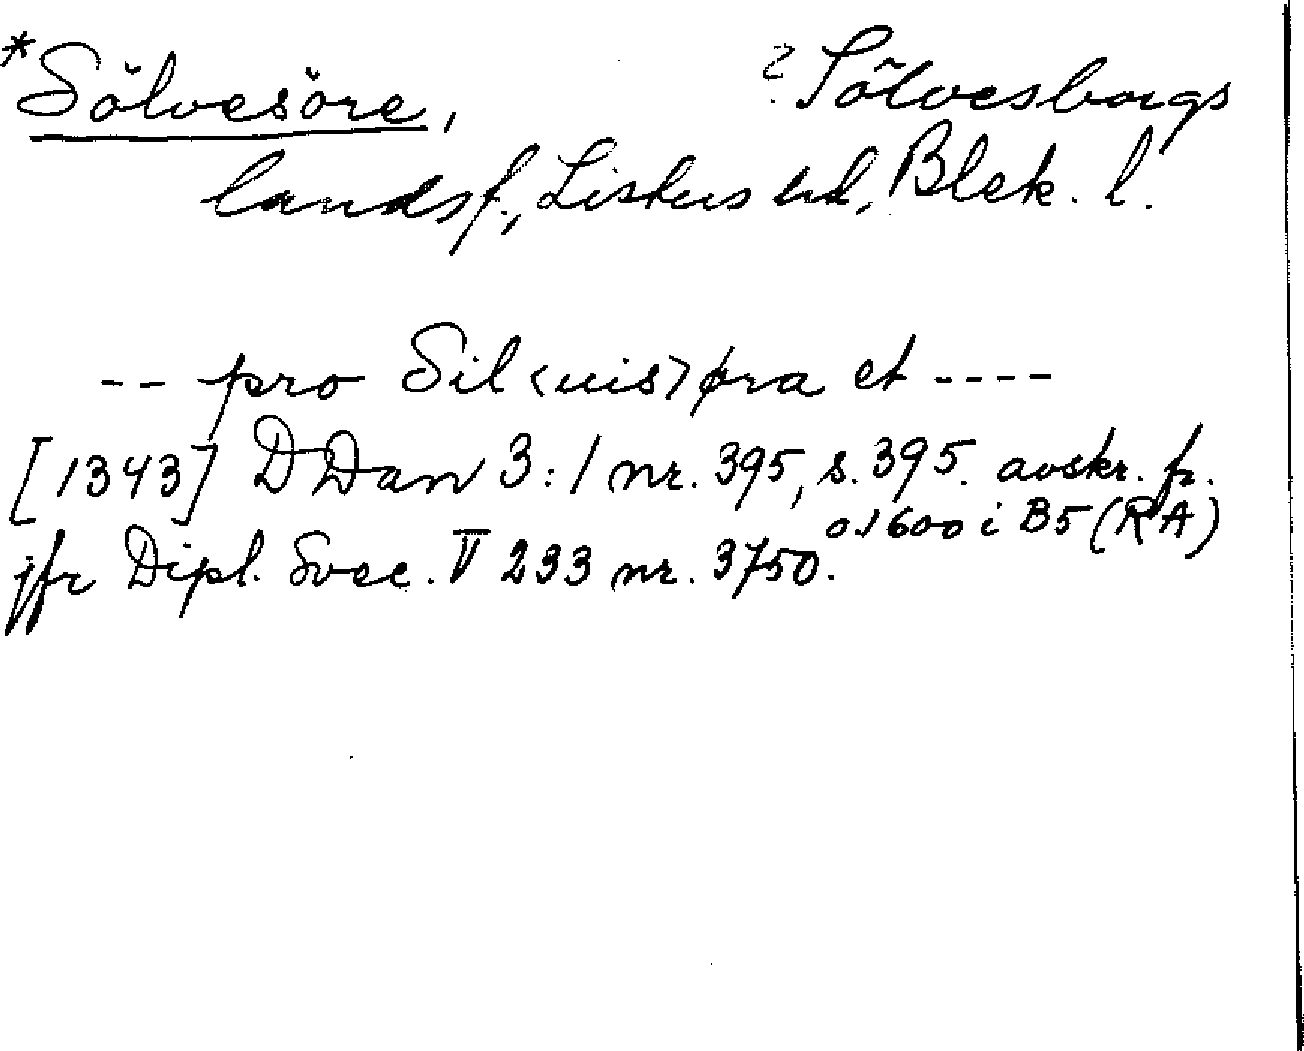 *Sölvesöre, ? Sölvesborgs
landsf., Listers hd, Blek. l.
-- pro Sil<uis>øra et ----
[1343] DDan 3:1 nr. 395, s. 395. avskr. fr.
o. 1600 i B5 (RA)
jfr Dipl. Svec. V 233 nr. 3750.